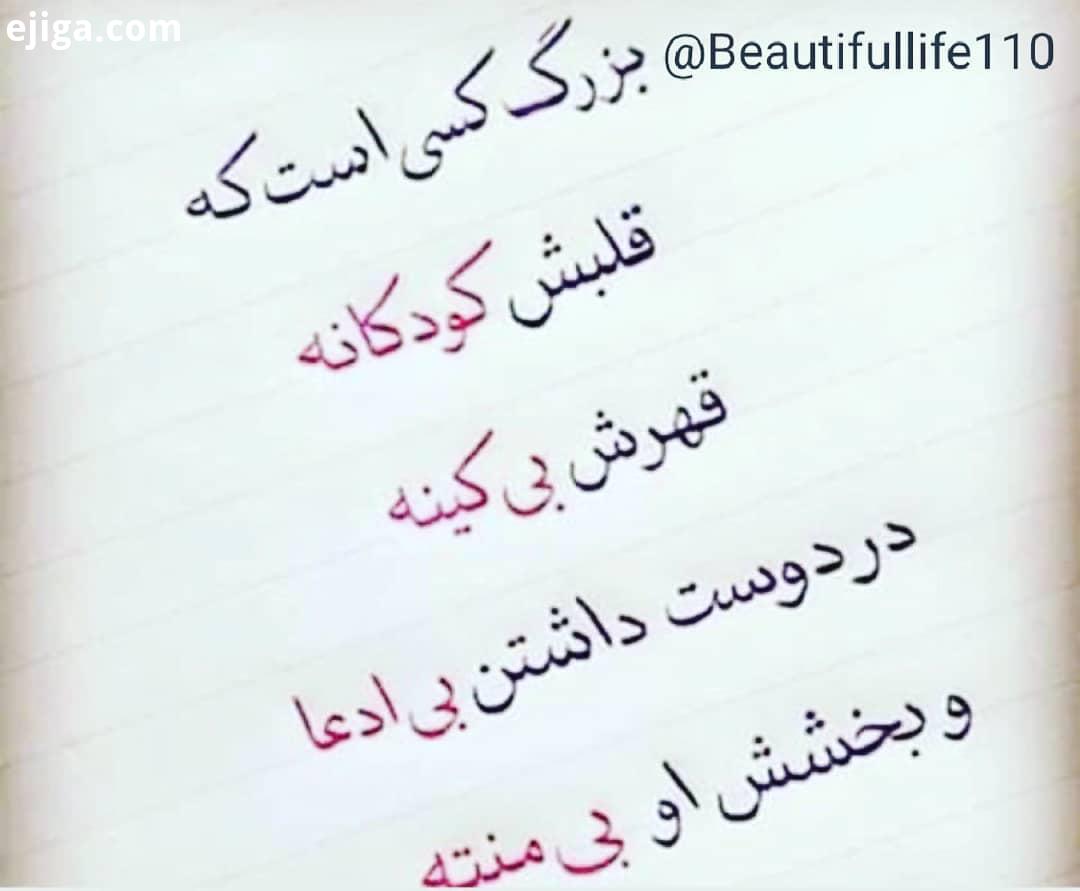 ejiga.com
@Beautifullife110
بزرگ کسی است که
قلبش کودکانه
قهرش بی کینه
در دوست داشتن بی ادعا
و بخشش او بی منته